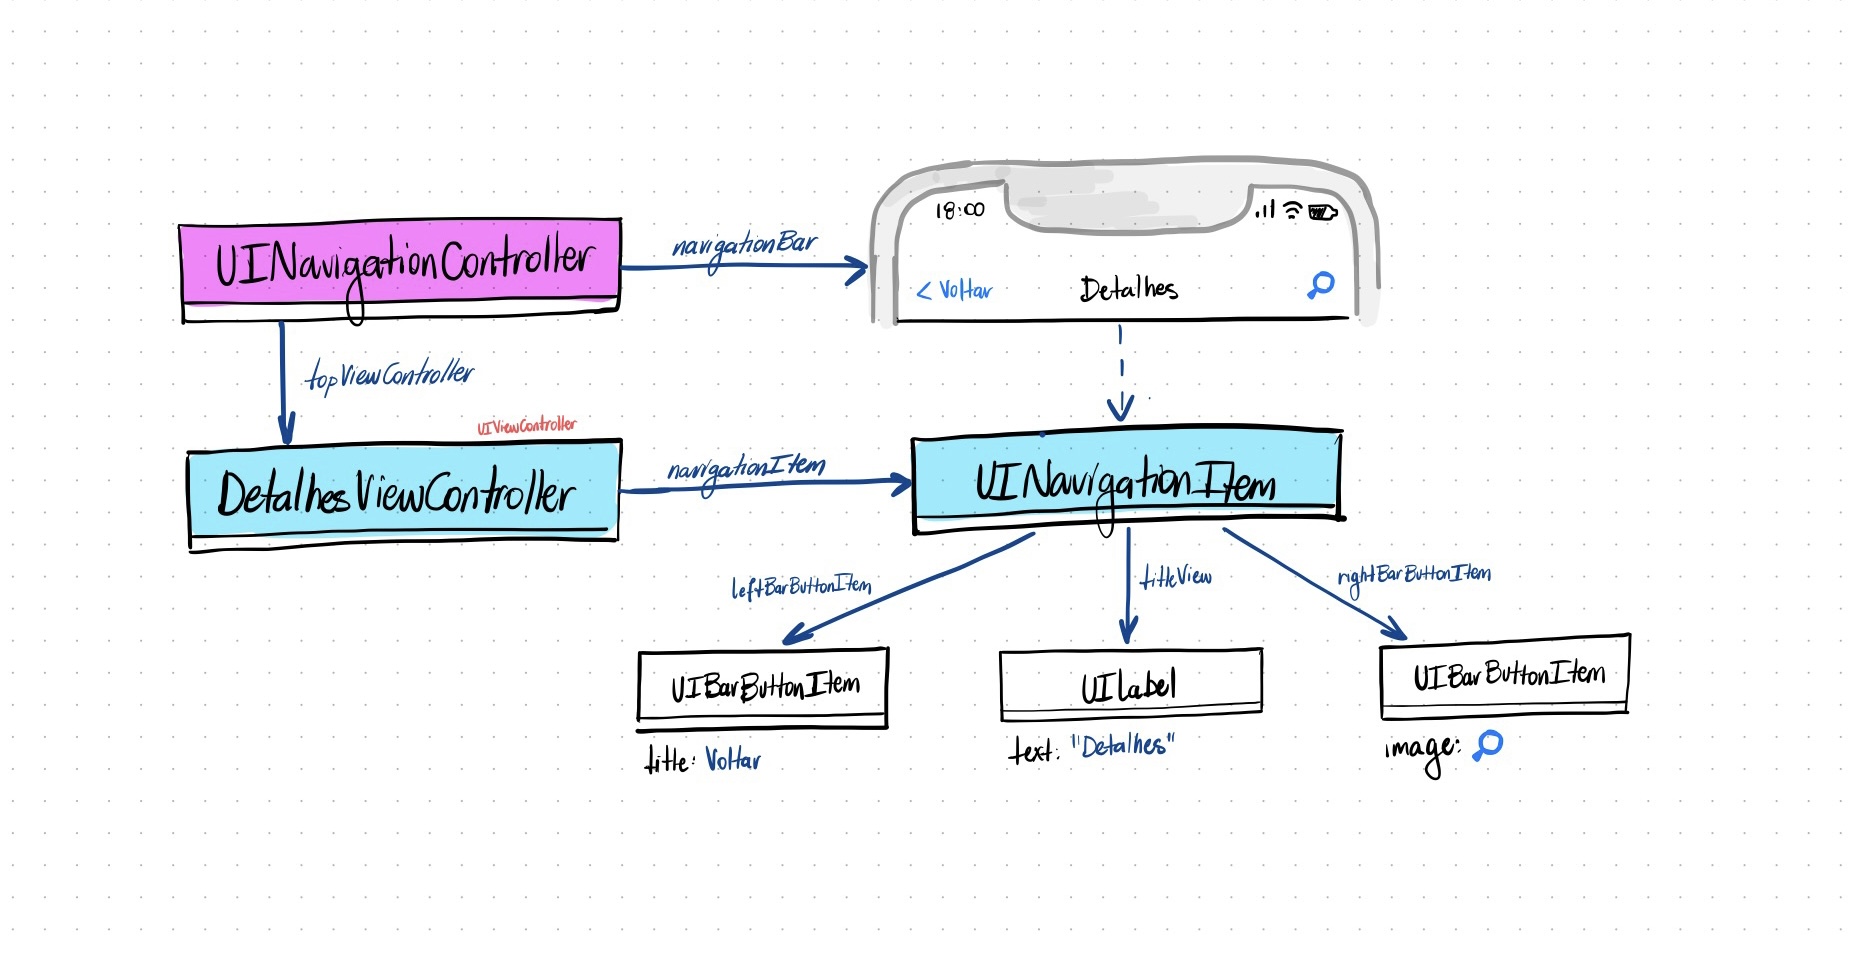 18:00
UINavigationController
navigationBar
< Voltar
Detalhes
topViewController
UIViewController
DetalhesViewController
navigationItem
UINavigationItem
leftBarButtonItem
titleView
rightBarButtonItem
UIBarButtonItem
UILabel
UIBarButtonItem
title: Voltar
text: "Detalhes"
image: